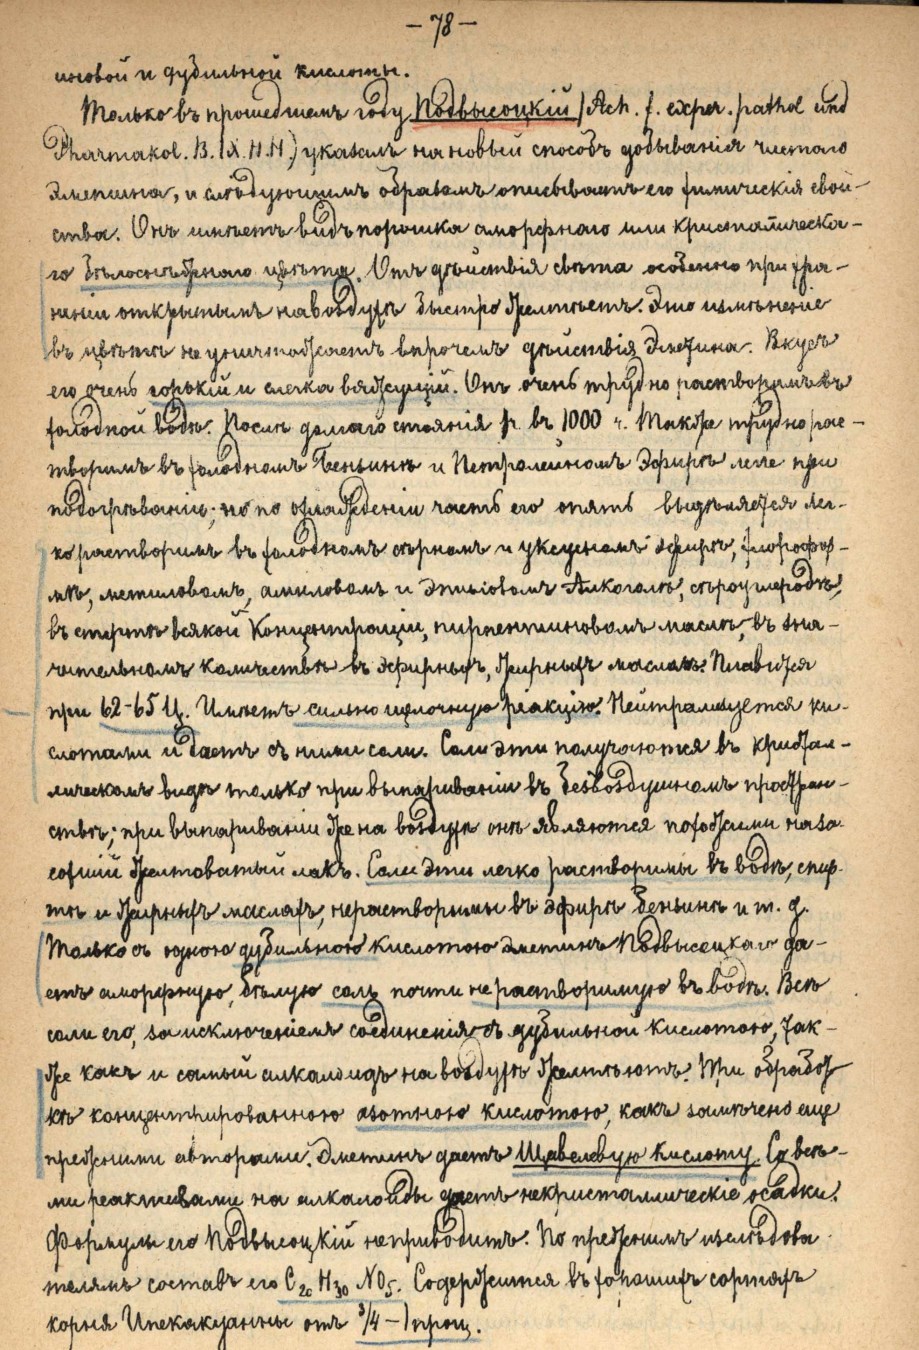 — 78 —
иновой и дубильной кислоты.
Только въ прошедшемъ году Подвысоцкій (Ach. f. exper. pathol und
Pharmakol. B. (X. H. H.) указалъ на новый способъ добыванія чистаго
Эметина, и слѣдующимъ образомъ описываетъ его химическія свой-
ства. Онъ имѣетъ видъ порошка аморфнаго или кристалическа-
го бѣлоснѣжнаго цвѣта. Отъ дѣйствія свѣта особенно при хра-
неніи открытымъ на воздухѣ быстро желтѣетъ. Это измѣненіе
въ цвѣтѣ не уничтожаетъ впрочемъ дѣйствія Эметина. Вкусъ
его очень горькій и слегка вяжущій. Онъ очень трудно растворимъ въ
холодной водѣ. Послѣ долгаго стоянія 1 ч. въ 1000 ч. Также трудно рас-
творимъ въ холодномъ Бензинѣ и Петролейномъ Эфирѣ легче при
подогрѣваніи; но по охлажденіи часть его опять выдѣляется лег-
ко растворимъ въ холодномъ сѣрномъ и уксусномъ эфирѣ, хлорофор-
мѣ, метиловомъ, амиловомъ и этиловомъ Алкоголѣ, сѣроуглеродѣ,
въ спиртѣ всякой Концентраціи, тирпентиновомъ маслѣ, въ зна-
чительномъ количествѣ въ эфирныхъ, жирныхъ маслахъ. Плавится
при 62-65 Ц. Имѣетъ сильно щелочную реакцію. Нейтрализуется ки-
слотами и даетъ съ ними соли. Соли эти получаются въ кристал-
лическомъ видѣ только при выпариваніи въ безвоздушномъ простран-
ствѣ; при выпариваніи же на воздухѣ онѣ являются похожими на за-
сохшій желтоватый лакъ. Соли эти легко растворимы въ водѣ, спир-
тѣ и жирныхъ маслахъ, нерастворимы въ эфирѣ бензинѣ и т. д.
Только съ одною дубильною кислотою эметинъ Подвысоцкаго да-
етъ аморфную, бѣлую соль почти нерастворимую въ водѣ. Всѣ
соли его, за исключеніемъ соединенія съ дубильной кислотою, так-
же какъ и самый алкалоидъ на воздухѣ желтѣютъ. При обработ
кѣ концентрированною азотною кислотою, какъ замѣчено еще
прежними авторами. Эметинъ даетъ Щавелевую кислоту. Со всѣ-
ми реактивами на алкалоиды даетъ некристаллическіе осадки.
Формулы его Подвысоцкій неприводитъ. По прежнимъ изслѣдова
телямъ составъ его C₂₀ H₃₀ NO₅. Содержится въ хорошихъ сортахъ
корня Ипекакуанны отъ 3/4 — 1 проц.